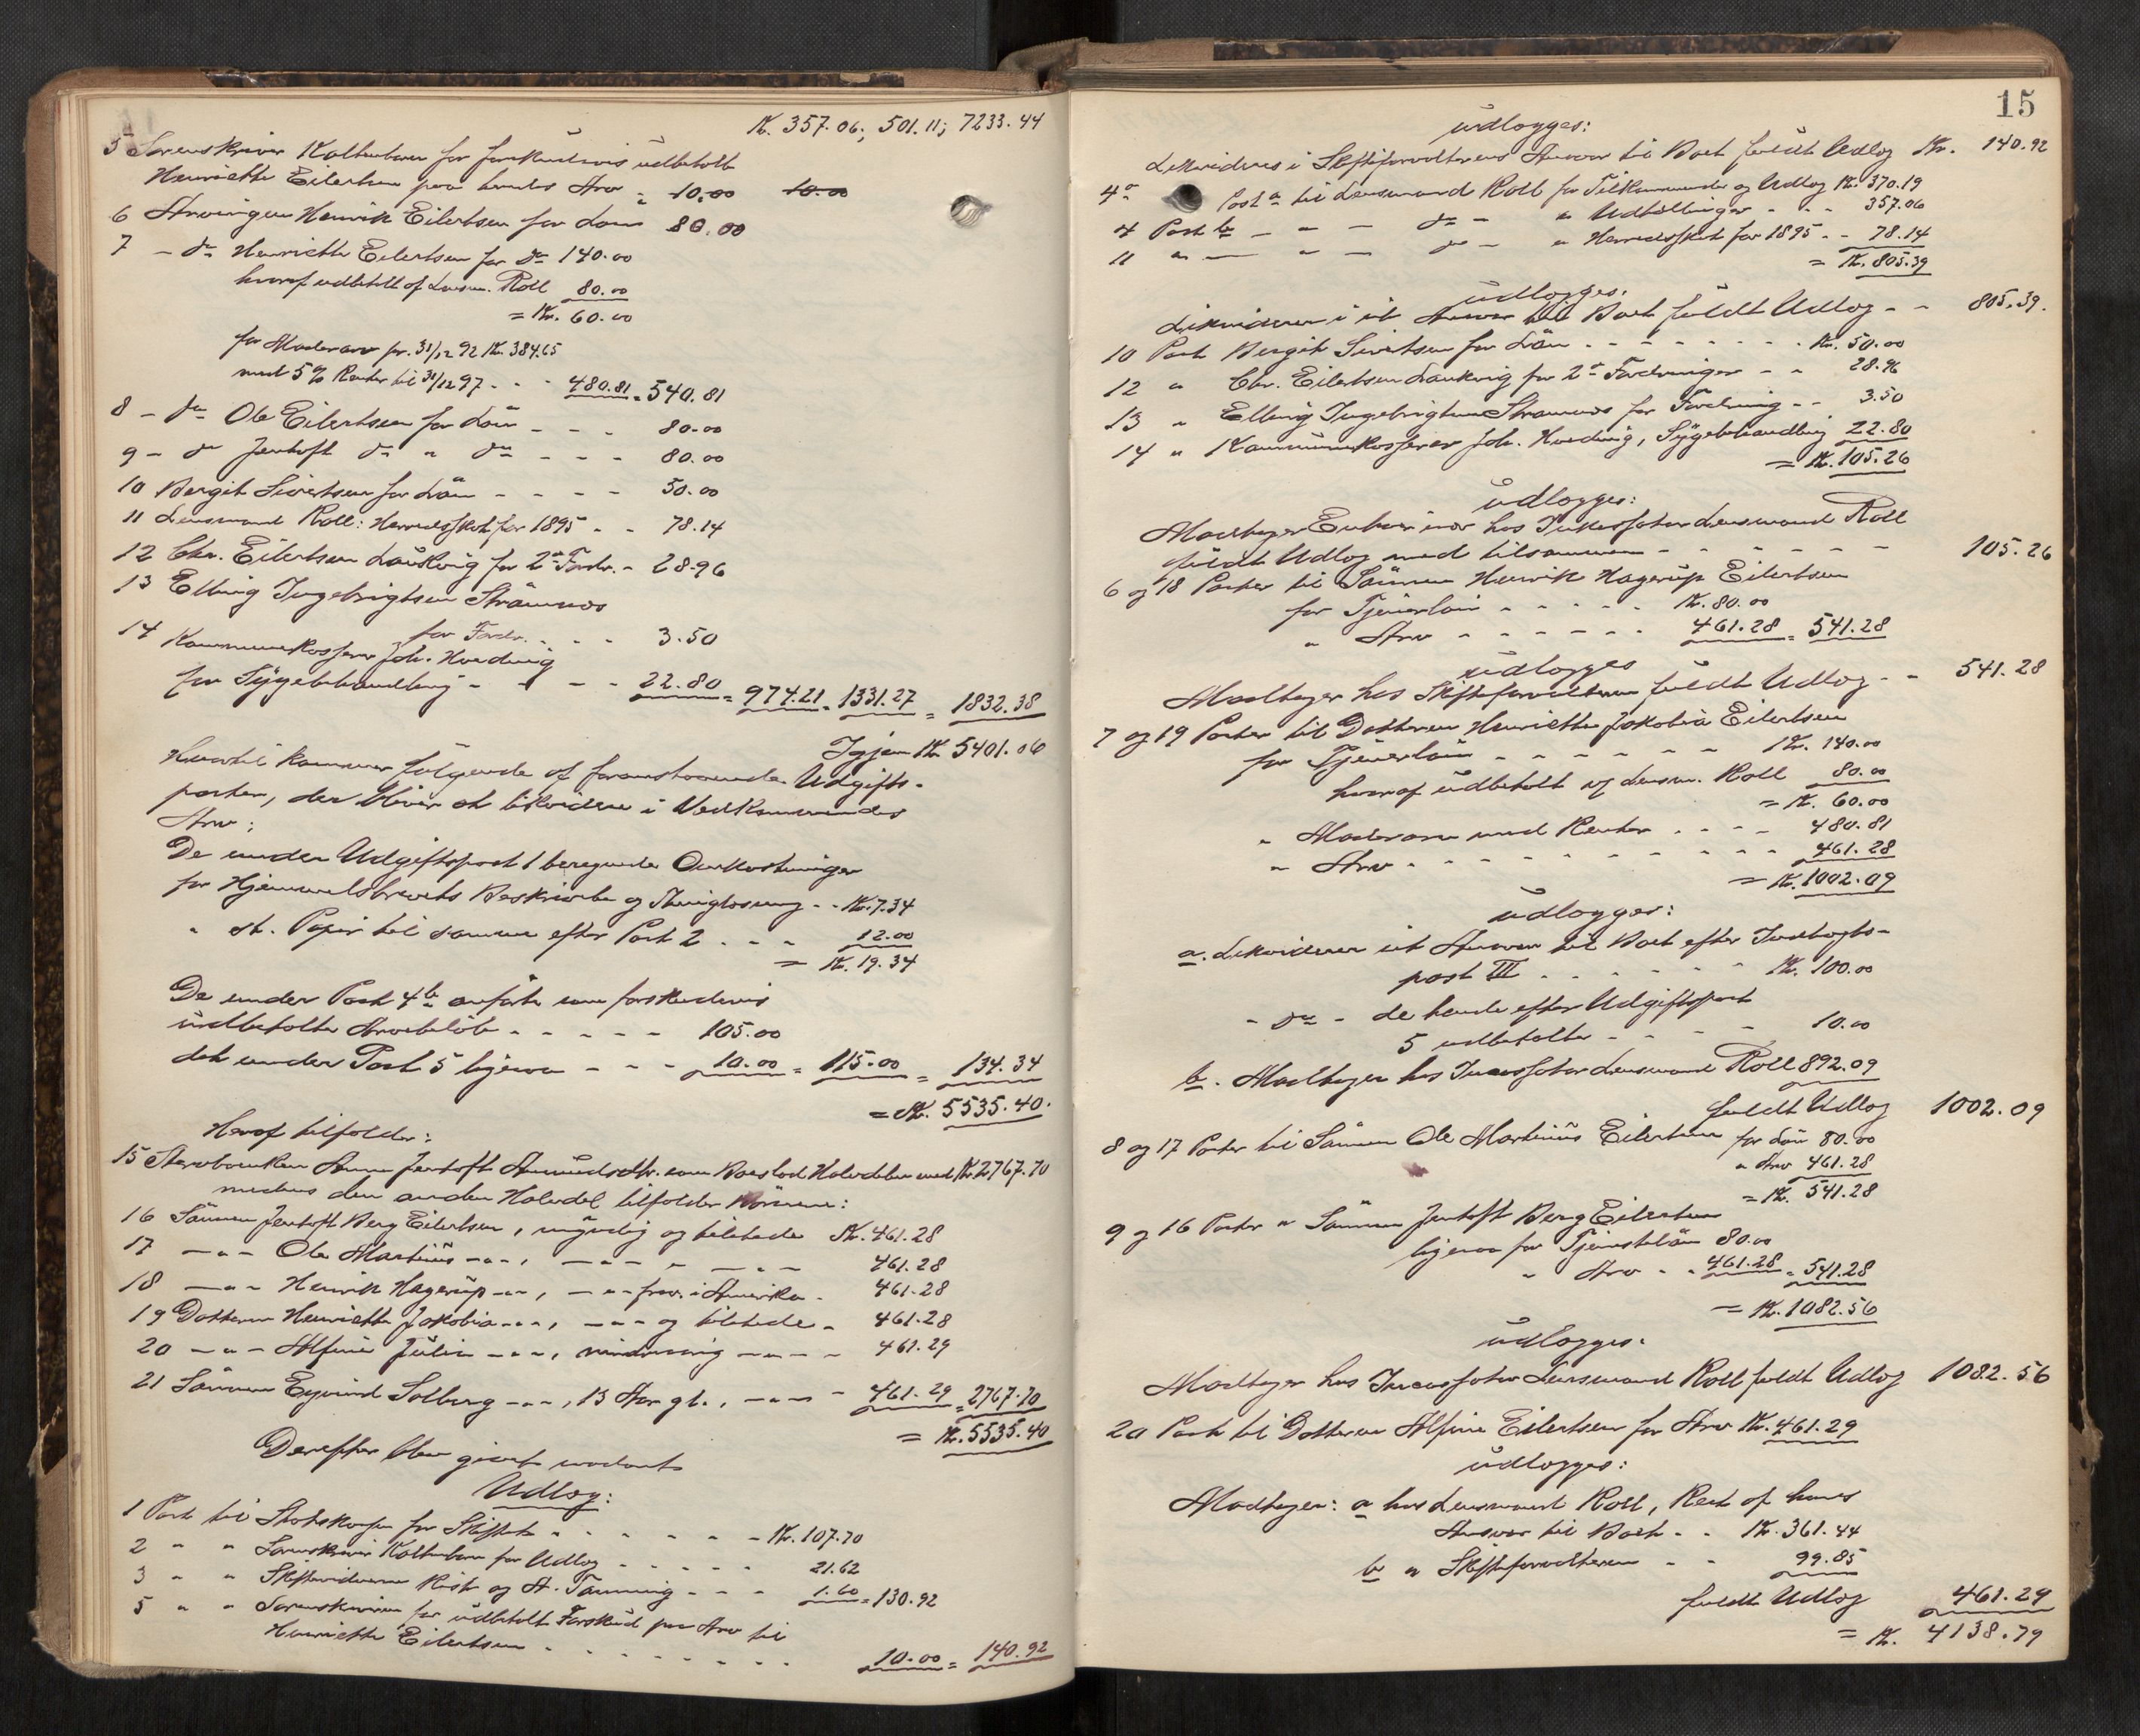 Kr. 357.06; 501.11; 7233.44
5 Sorenskriver Kaltenborn for forskudvis udbetalt
Henriette Eilertsen paa hendes Arv " 10.00 10.00
6 Arvingen Henrik Eilertsen for Løn 80.00
7 – do Henriette Eilertsen for do 140.00
hvoraf udbetalt af Lensm. Roll 80.00
= Kr. 60.00
for Mødrearv pr. 31/12 92 Kr. 384.65
med 5% Renter til 31/12 97 - - - 480.81 = 540.81
8 – do Ole Eilertsen for Løn - - - 80.00
9 – do Jentoft do " do - - - 80.00
10 Bergit Sivertsen for Løn - - - - 50.00
11 Lensmand Roll: Herredsskat for 1895 - - 78.14
12 Chr. Eilertsen Laukvig for 2de Fordr. - 28.96
13 Elling Ingebrigtsen Strømnes
for Fordr. - - - 3.50
14 Kommunekasserer Joh. Hveding
for Sygebehandling - - - - 22.80 = 974.21 = 1331.27 = 1832.38
Igjen Kr. 5401.06
Hvortil kommer følgende af foranstaaende Udgifts-
poster, der bliver at likvidere i Vedkommendes
Arv:
De under Udgiftspost 1 beregnede Omkostninger
for Hjemmelsbrevets Beskrivelse og Thinglæsning - - Kr. 7.34
" st. Papir til samme efter Post 2 - - - 12.00
= Kr. 19.34
De under Post 4 b anførte som forskudsvis
udbetalte Arvebeløb - - - - - 105.00
det under Post 5 ligesaa - - - 10.00 = 115.00 = 134.34
= Kr. 5535.40.
Heraf tilfalder:
15 Sterbenken Anna Jentoft Amundsdtr. som Boeslod Halvdelen med Kr 2767.70
medens den anden Halvdel tilfalder Børnene:
16 Sønnen Jentoft Berg Eilertsen, myndig og tilstede Kr. 461.28
17 — " – Ole Martinius – " –, — " – " — " – 461.28
18 — " – Henrik Hagerup – " –, – " – frav. i Amerika - 461.28
19 Datteren Henriette Jakobia – " –, – " – og tilstede - 461.28
20 – " – Alfine Julie – " –, mindreaarig – " – - 461.29
21 Sønnen Eyvind Solberg – " –, 13 Aar gl., – " – - 461.29 = 2767.70
= Kr. 5535.40
Derefter blev givet saadant
Udlog:
1 Post til Statskassen for Skiftet - - - - - - - Kr. 107.70
2 " " Sorenskriver Kaltenborn for Udlæg - - - - - 21.62
3 " " Skiftevidnerne Rist og A. Tanning - - - 1.60 = 130.92
5 " " Sorenskriveren for udbetalt Forskud paa Arv til
Henriette Eilertsen - - - - - - - - 10.00 = 140.92
15
udlogges:
Likvideres i Skifteforvalterens Ansvar til Boet fuldt Udlog Kr. 140.92
4 a Post a til Lensmand Roll for Tilkommende og Udlæg Kr. 370.19
4 Post b – " – do – " Udtællinger - - - 357.06
11 " — " — do – " Herredsskat for 1895 - - 78.14
= Kr. 805.39
udlogges:
Likviderer i sit Ansvar til Boet fuldt Udlog - - 805.39.
10 Post Bergit Sivertsen for Løn - - - - - - - - Kr. 50.00
12 " Chr. Eilertsen Laukvig for 2de Fordringer - - 28.96
13 " Elling Ingebrigtsen Strømnes for Fordring - - 3.50
14 " Kommunekasserer Joh. Hveding, Sygebehandling 22.80
= Kr. 105.26
udlogges:
Modtager Enhver især hos Inkassator Lensmand Roll
fuldt Udlog med tilsammen - - - - - - 105.26
6 og 18 Poster til Sønnen Henrik Hagerup Eilertsen
for Tjenerløn - - - - - Kr. 80.00
" Arv - - - - - - 461.28 = 541.28
udlogges
Modtager hos Skifteforvalteren fuldt Udlog - - 541.28
7 og 19 Poster til Datteren Henriette Jakobia Eilertsen
for Tjenerløn - - - - - - Kr. 140.00
hvoraf udbetalt af Lensm. Roll 80.00
= Kr. 60.00
" Mødrearv med Renter - - - - 480.81
" Arv - - - - - - - - - - 461.28
= Kr. 1002.09
udlogges:
a. Likviderer sit Ansvar til Boet efter Indtægts-
post III - - - - - - Kr. 100.00
- do - de hende efter Udgiftspost
5 udbetalte - - - - 10.00
b. Modtager hos Incassator Lensmand Roll 892.09
fuldt Udlog 1002.09
8 og 17 Poster til Sønnen Ole Martinius Eilertsen for Løn 80.00
" Arv 461.28
= Kr. 541.28
9 og 16 Poster " Sønnen Jentoft Berg Eilertsen
ligesaa for Tjenesteløn 80.00
" Arv - - 461.28 = 541.28
= Kr. 1082.56
udlogges:
Modtager hos Incassator Lensmand Roll fuldt Udlog 1082.56
20 Post til Datteren Alfine Eilertsen for Arv Kr. 461.29
udlogges:
Modtager: a hos Lensmand Roll, Rest af hans
Ansvar til Boet - - Kr. 361.44
b " Skifteforvalteren - - 99.85
fuldt Udlog 461.29
= Kr. 4138.79